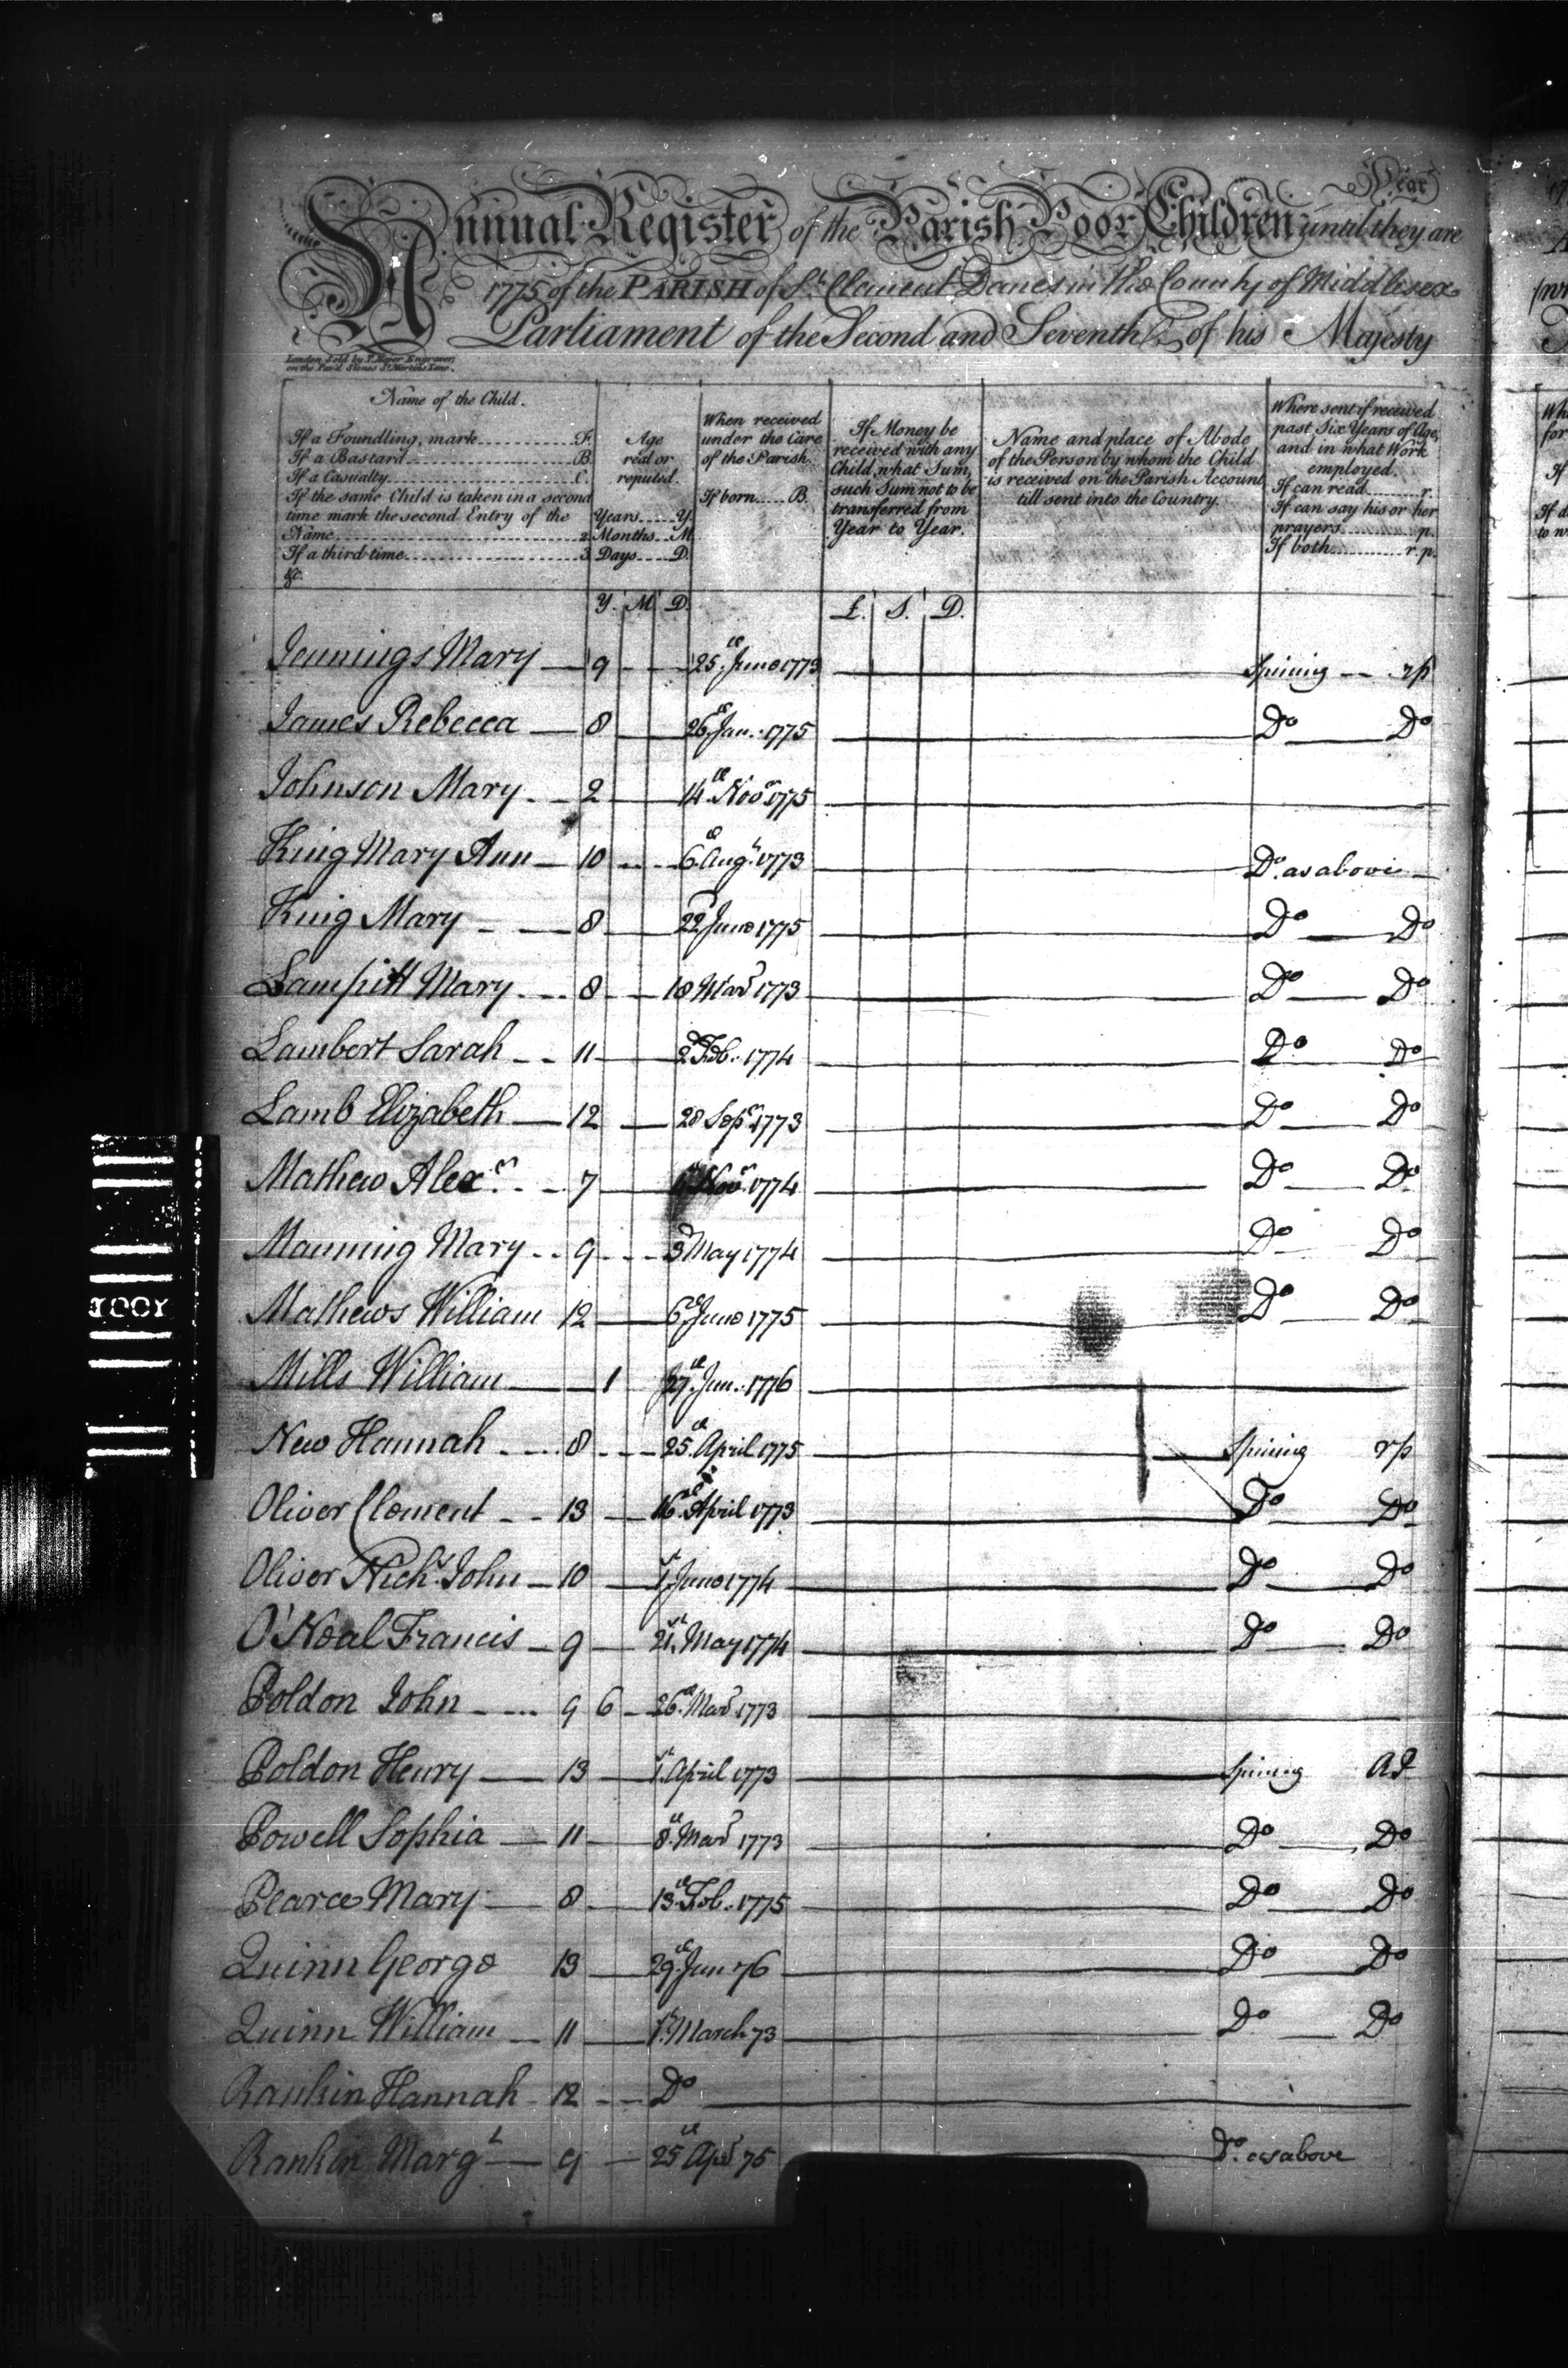 Year
Annual Register of the Parish Poor Children until they are
1775 of the PARISH of St. Clement Danes in the County of Middlesex
Parliament of the Second and Seventh of his Majesty
London Sold by
on the Pav'd Stones St. Martins Lane.
Name of the Child.
If a Foundling, mark F.
If a Bastard B.
If a Casualty C.
If the same Child is taken in a second
time mark the second Entry of the
Name 2.
If a third time 3.
&c.
Age
real or
reputed.
Years Y.
Months M.
Days D.
When received
under the Care
of the Parish.
If born B.
If Money be
received with any
Child, what Sum,
such Sum not to be
transferred from
Year to Year.
Name and place of Abode
of the Person by whom the Child
is received on the Parish Account
till sent into the Country.
Where sent if received
past Six Years of Age,
and in what Work
employed.
If can read r.
If can say his or her
prayers p.
If both r. p.
Y. M. D. £. S. D.
Jennings Mary 9 25th June 1773 Spining rp
James Rebecca 8 26th Jan. 1775 Do Do
Johnson Mary 2 14th Novr 1775
King Mary Ann 10 6th Augt 1773 Do. as above
King Mary 8 22d June 1775 Do Do
Lampitt Mary 8 18 Mar 1773 Do Do
Lambert Sarah 11 2d Feb. 1774 Do Do
Lamb Elizabeth 12 28 Sepr 1773 Do Do
Mathew Alexr. 7 Novr 1774 Do Do
Manning Mary 9 3d May 1774 Do Do
Mathews William 12 6th June 1775 Do Do
Mills William 1 27th Jan. 1776
New Hannah 8 25th April 1775 Spining rp
Oliver Clement 13 16th April 1773 Do Do
Oliver Richd John 10 1st June 1774 Do Do
O'Neal Francis 9 21st May 1774 Do Do
Poldon John 9 6 26th Mar 1773
Poldon Henry 13 1st April 1773 Spining
Powell Sophia 11 8th Mar 1773 Do Do
Pearce Mary 8 13th Feb. 1775 Do Do
Quinn George 13 29th Jan 76 Do Do
Quinn William 11 1st March 73 Do Do
Rankin Hannah 12 Do
Rankin Margt 9 25th Apr 75 Do. as above